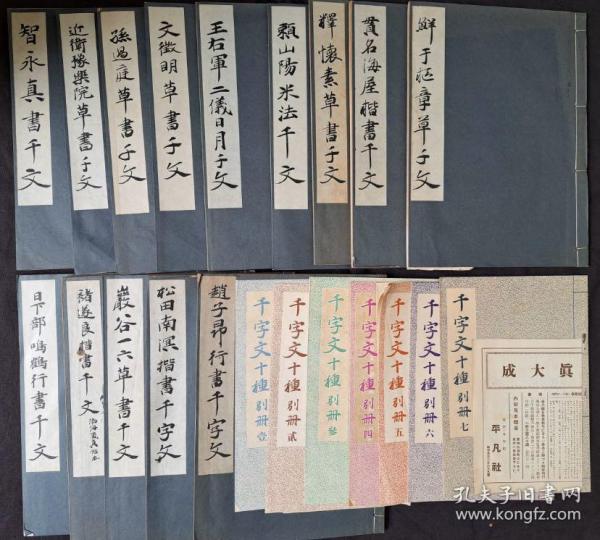 智永真書千文
近衛豫樂院草書千文
孫過庭草書千文
文徵明草書千文
王右軍二儀日月千文
賴山陽米法千文
釋懷素草書千文
貫名海屋楷書千文
鮮于樞章草千文
日下部鳴鶴行書千文
褚遂良楷書千文
巖谷一六草書千文
松田南溟楷書千字文
趙子昂行書千字文
千字文十種別冊壹
千字文十種別冊貳
千字文十種別冊叄
千字文十種別冊四
千字文十種別冊五
千字文十種別冊六
千字文十種別冊七
成大眞
平凡社
孔夫子旧书网
www.kongfz.com